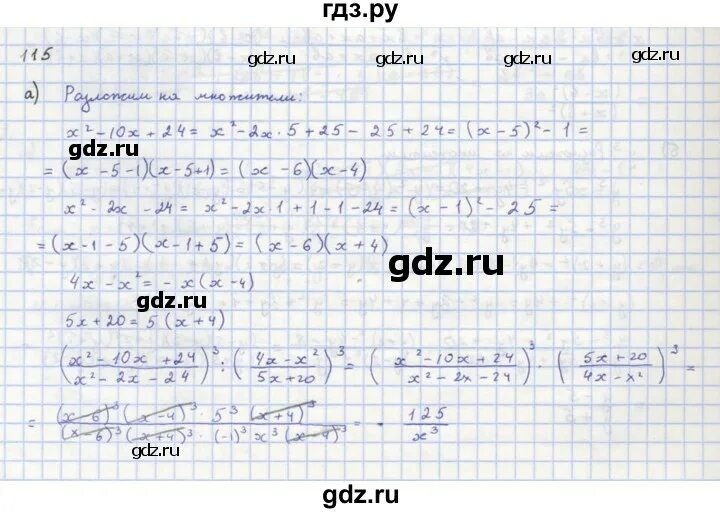 гдз.ру
115
gdz.ru gdz.ru
а) Разложим на множители:
x² - 10x + 24 = x² - 2x · 5 + 25 - 25 + 24 = (x - 5)² - 1 =
gdz.ru
= (x - 5 - 1)(x - 5 + 1) = (x - 6)(x - 4)
x² - 2x - 24 = x² - 2x · 1 + 1 - 1 - 24 = (x - 1)² - 25 =
= (x - 1 - 5)(x - 1 + 5) = (x - 6)(x + 4)
gdz.ru
4x - x² = - x(x - 4)
gdz.ru
5x + 20 = 5(x + 4)
gdz.ru gdz.ru
((x² - 10x + 24)/(x² - 2x - 24))³ : ((4x - x²)/(5x + 20))³ = ((x² - 10x + 24)/(x² - 2x - 24))³ · ((5x + 20)/(4x - x²))³ =
= ((x - 6)³ (x - 4)³ · 5³ (x + 4)³)/((x - 6)³ (x + 4)³ · (-1)³ x³ (x - 4)³) = - 125/x³
gdz.ru
gdz.ru